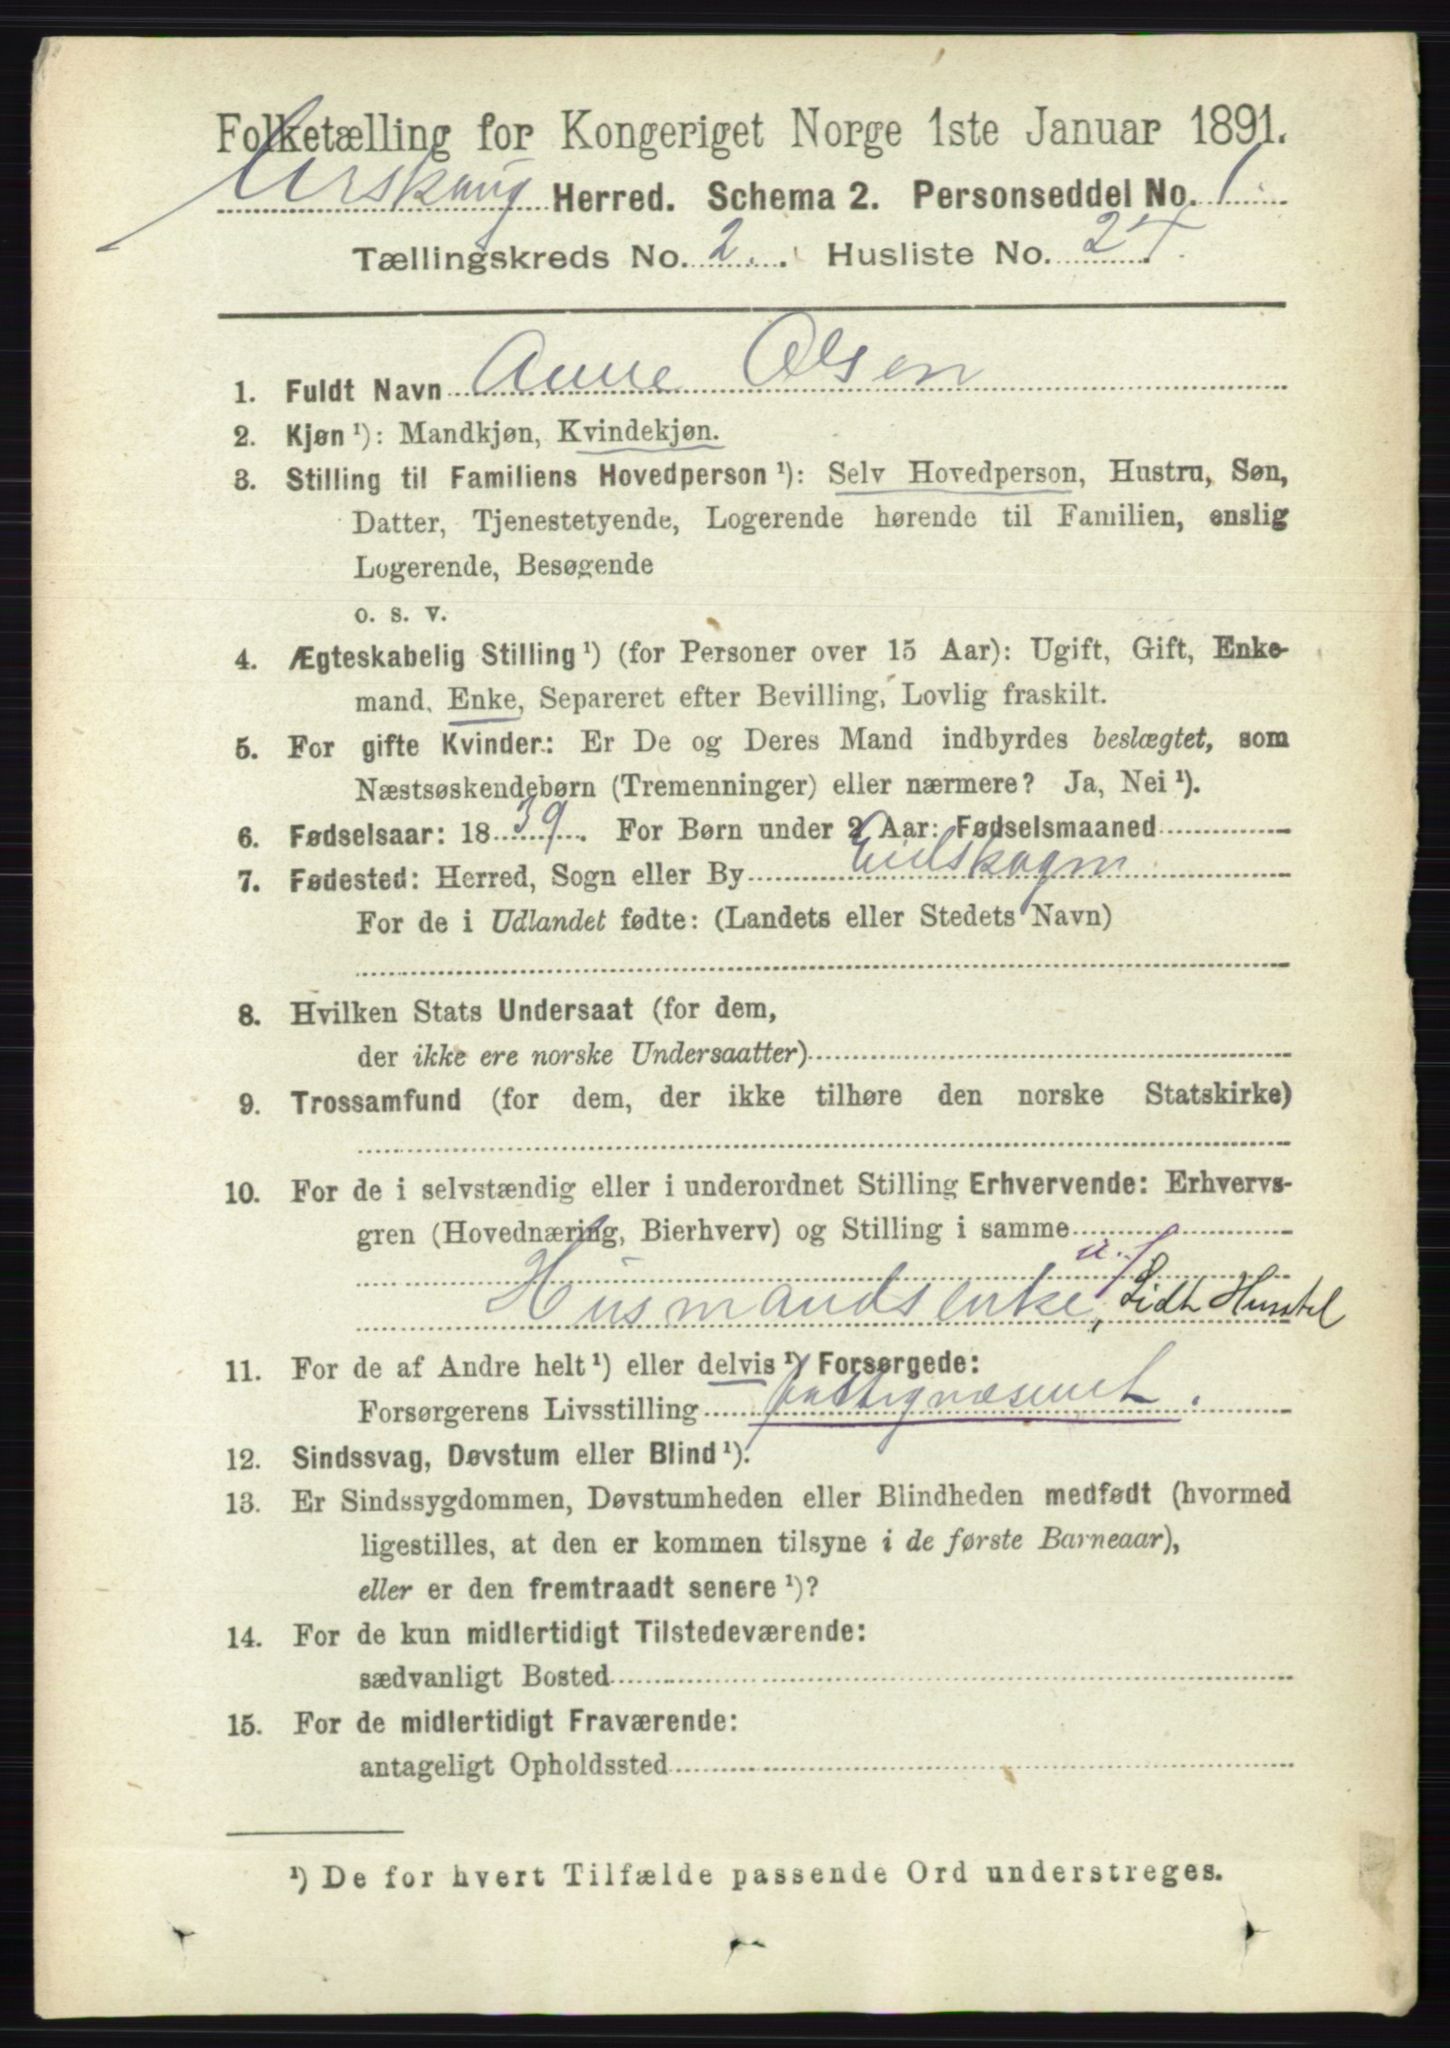 Folketælling for Kongeriget Norge 1ste Januar 1891.
Urskoug Herred. Schema 2. Personseddel No. 1
Tællingskreds No. 2. Husliste No. 24.
1. Fuldt Navn Anne Olsen
2. Kjøn ¹): Mandkjøn, Kvindekjøn.
3. Stilling til Familiens Hovedperson ¹): Selv Hovedperson, Hustru, Søn,
Datter, Tjenestetyende, Logerende hørende til Familien, enslig
Logerende, Besøgende
o. s. v.
4. Ægteskabelig Stilling ¹) (for Personer over 15 Aar): Ugift, Gift, Enke-
mand, Enke, Separeret efter Bevilling, Lovlig fraskilt.
5. For gifte Kvinder: Er De og Deres Mand indbyrdes beslægtet, som
Næstsøskendebørn (Tremenninger) eller nærmere? Ja, Nei ¹).
6. Fødselsaar: 1839. For Børn under 2 Aar: Fødselsmaaned
7. Fødested: Herred, Sogn eller By Eidskogn
For de i Udlandet fødte: (Landets eller Stedets Navn)
8. Hvilken Stats Undersaat (for dem,
der ikke ere norske Undersaatter)
9. Trossamfund (for dem, der ikke tilhøre den norske Statskirke)
10. For de i selvstændig eller i underordnet Stilling Erhvervende: Erhvervs-
gren (Hovednæring, Bierhverv) og Stilling i samme
Husmandsenke u. J.
11. For de af Andre helt ¹) eller delvis ¹) Forsørgede:
Forsørgerens Livsstilling fattigvæsenet.
12. Sindssvag, Døvstum eller Blind ¹).
13. Er Sindssygdommen, Døvstumheden eller Blindheden medfødt (hvormed
ligestilles, at den er kommen tilsyne i de første Barneaar),
eller er den fremtraadt senere ¹)?
14. For de kun midlertidigt Tilstedeværende:
sædvanligt Bosted
15. For de midlertidigt Fraværende:
antageligt Opholdssted
¹) De for hvert Tilfælde passende Ord understreges.